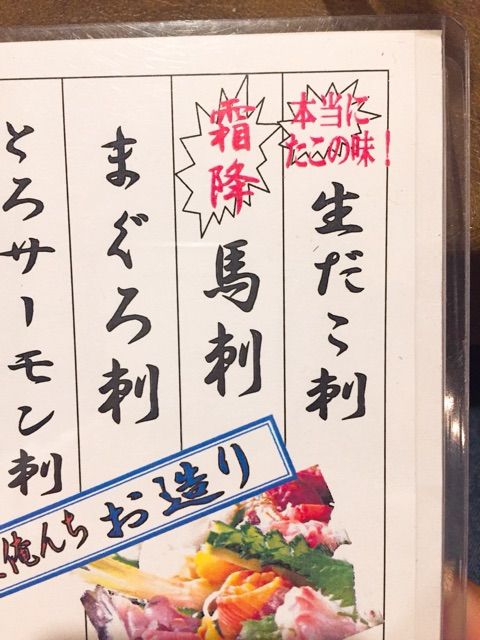 本当に
たこの味！
生だこ刺
霜降
馬刺
まぐろ刺
とろサーモン刺
俺んち お造り